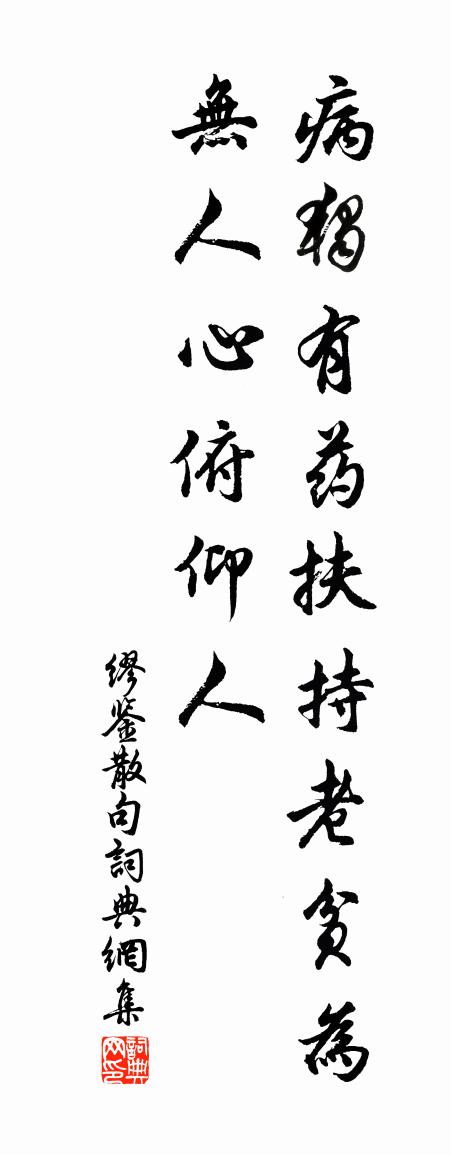 病獨有药扶持老貧為
無人心俯仰人
缪鉴散句詞典網集
詞典
网印